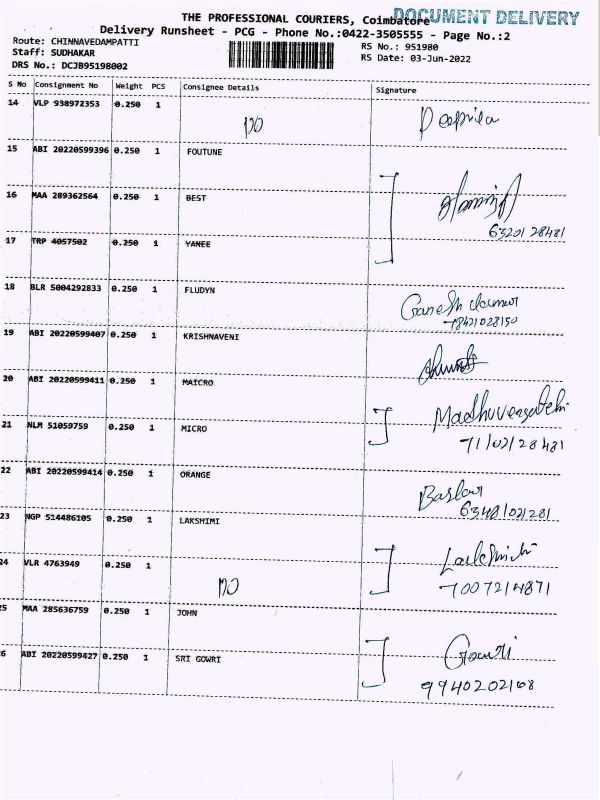 THE PROFESSIONAL COURIERS, Coimbatore DOCUMENT DELIVERY
Delivery Runsheet - PCG - Phone No.:0422-3505555 - Page No.:2
Route: CHINNAVEDAMPATTI
Staff: SUDHAKAR
DRS No.: DCJB95198002
RS No.: 951980
RS Date: 03-Jun-2022
S No Consignment No Weight PCS Consignee Details Signature
14 VLP 938972353 0.250 1
DO
15 ABI 20220599396 0.250 1 FOUTUNE
16 MAA 289362564 0.250 1 BEST
17 TRP 4057502 0.250 1 YANEE
18 BLR 5004292833 0.250 1 FLUDYN
Ganesh Kumar
19 ABI 20220599407 0.250 1 KRISHNAVENI
20 ABI 20220599411 0.250 1 MAICRO
21 NLM 51059759 0.250 1 MICRO
22 ABI 20220599414 0.250 1 ORANGE
23 NGP 514486105 0.250 1 LAKSHIMI
24 VLR 4763949 0.250 1
DO
7007214871
25 MAA 285636759 0.250 1 JOHN
26 ABI 20220599427 0.250 1 SRI GOWRI
Gowri
9940202108